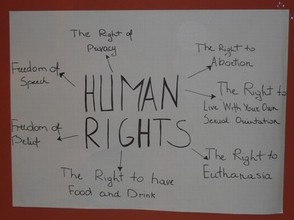 The Right of
Privacy
The Right to
Abortion
Freedom of
Speech
HUMAN
The Right to
Live With Your Own
Sexual Orientation
Freedom of
Belief
RIGHTS
The Right to
Euthanasia
The Right to have
Food and Drink